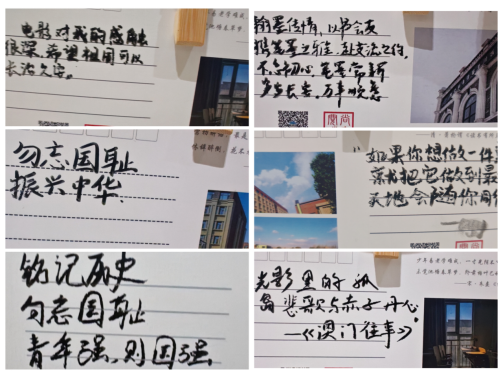 电影对我的感触
很深,希望祖国可以
长治久安。
翰墨传情,以书会友
携笔墨之雅,赴文法之约,
不忘初心,笔墨常新
岁岁长安,万事顺意
勿忘国耻
振兴中华
如果你想做一件
就把它做到最
天地会随你同行
铭记历史
勿忘国耻
青年强,则国强
光影里的孤
岛悲歌与赤子丹心
——《澳门往事》